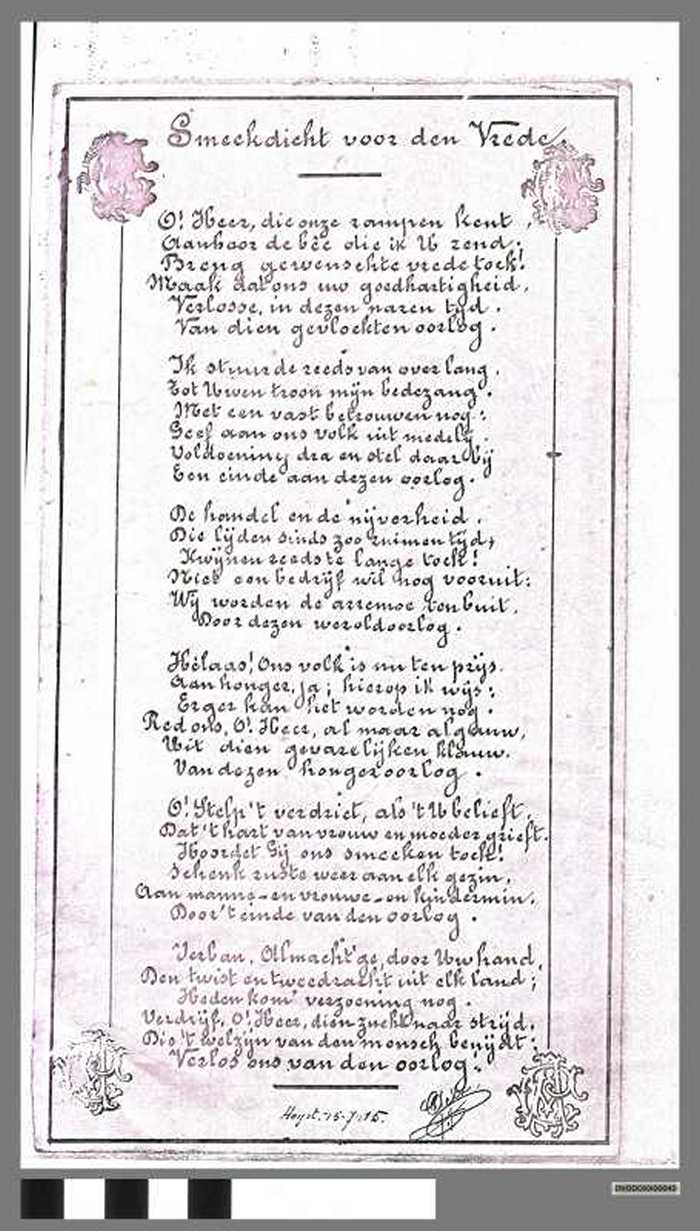 Smeekdicht voor den Vrede.
O! Heer, die onze rampen kent,
Aanhoor de bêe die ik U zend:
Breng gewenschte vrede toch!
Maak dat ons uw goedhartigheid,
Verlosse, in dezen naren tijd.
Van dien gevloekten oorlog.
Ik stuurde reeds van over lang.
Tot Uwen troon mijn bedezang.
Met een vast betrouwen nog:
Geef aan ons volk uit medelij.
Voldoening dra en stel daarbij
Een einde aan dezen oorlog.
De handel en de nijverheid.
Die lijden sinds zoo ruimen tijd;
Kwijnen reeds te lange toch!
Niet een bedrijf wil nog vooruit:
Wij worden de arremoe ten buit.
Door dezen weroldoorlog.
Hélaas! Ons volk is nu ten prijs.
Aan honger, ja; hierop ik wijs:
Erger kan het worden nog.
Red ons, O! Heer, al maar al gauw,
Uit dien gevarelijken klauw.
Van dezen hongeroorlog.
O! Stelp 't verdriet, als 't U belieft.
Dat 't hart van vrouw en moeder grieft.
Hoordet Gij ons smeeken toch!
Schenk ruste weer aan elk gezin.
Aan manne- en vrouwe- en kindermin.
Door 't einde van den oorlog.
Verban, Almacht'ge, door Uw hand,
Den twist en tweedracht uit elk land;
Heden kom' verzoening nog.
Verdrijf, O! Heer, dien zucht naar strijd.
Die 't welzijn van den mensch benijdt:
Verlos ons van den oorlog!
Heyst. 15-7-'15.